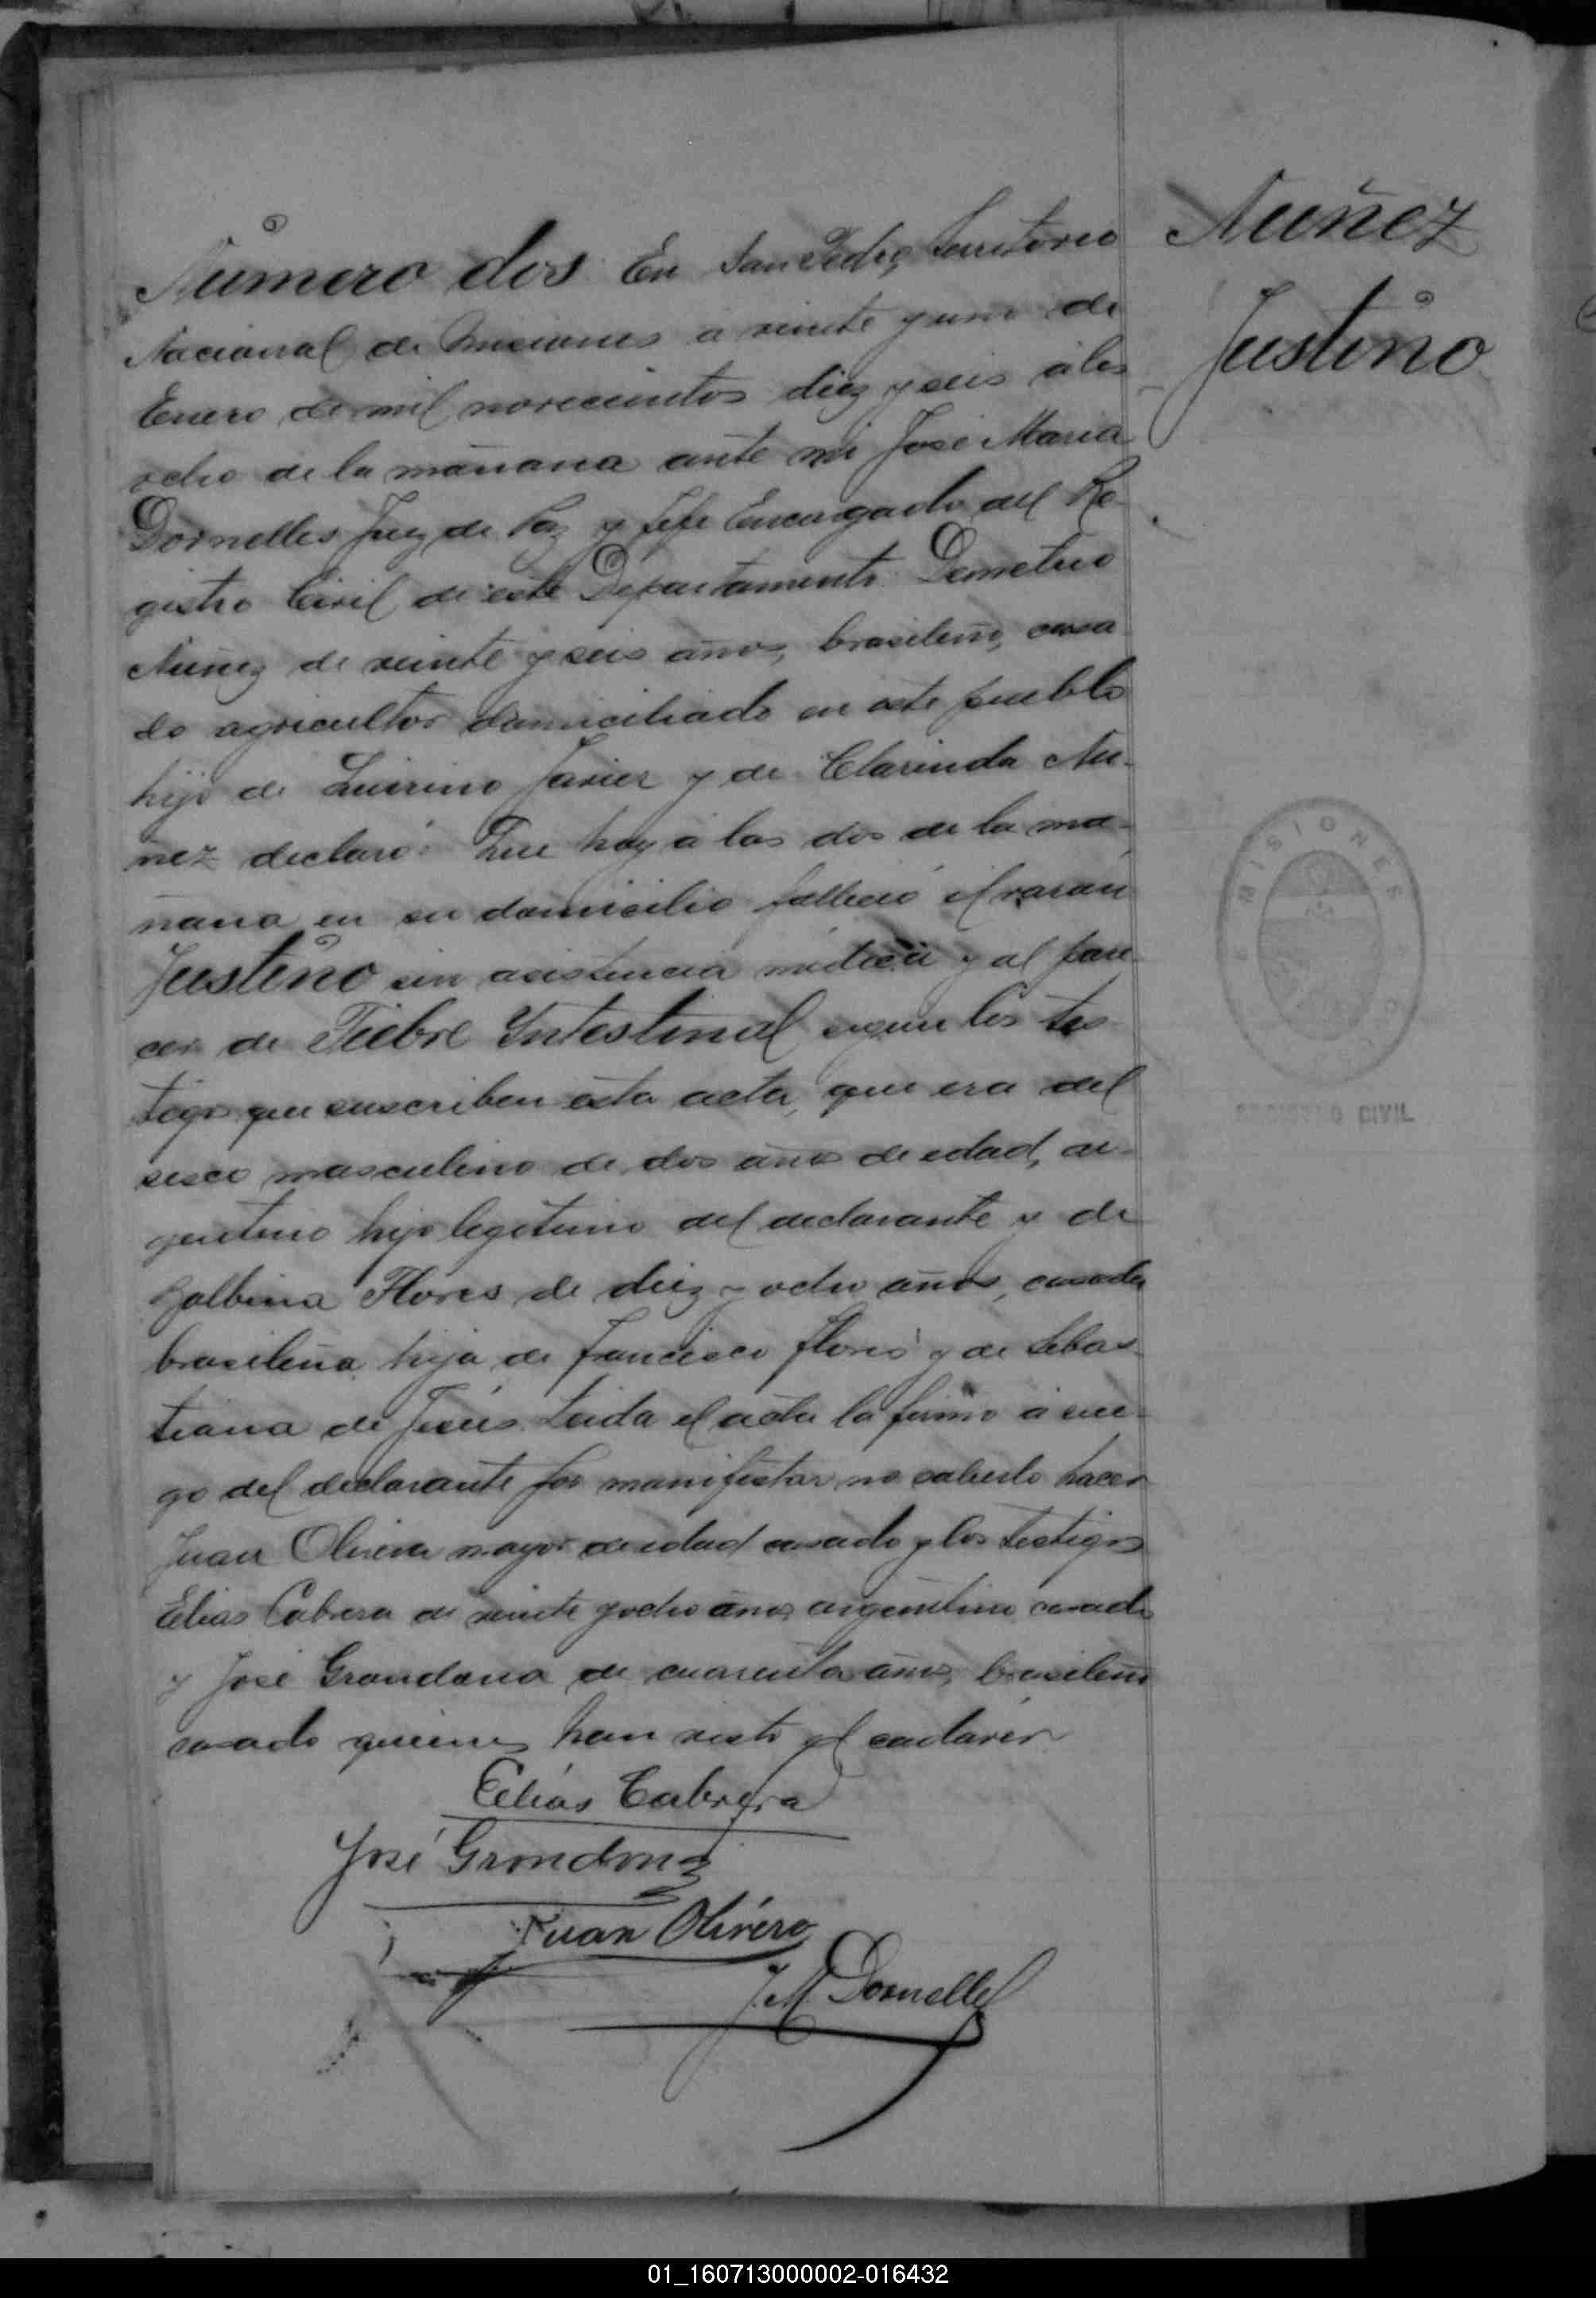 Número dos En San Pedro, territorio
Nacional de Misiones a veinte y uno de
Enero de mil novecientos diez y seis á las
ocho de la mañana ante mi José Maria
Dornelles Juez de Paz y Jefe Encargado del Re-
gistro Civil de este Departamento Demetrio
Nuñez de veinte y seis años, brasileño, casa
do agricultor domiciliado en este pueblo
hijo de Javier y de Clarinda Nu-
ñez declaró: Que hoy á las dos de la ma-
ñana en su domicilio falleció el varon
Justino sin asistencia médica y al pare-
cer de Fiebre Intestinal segun los tes
tigos que suscriben esta acta, que era del
sexo masculino de dos años de edad, ar-
gentino hijo legitimo del declarante y de
Balbina Flores de diez y ocho años, casada
brasileña hija de Francisco Flores y de Sebas-
tiana de Jesús. Leida el acta la firmó á rue-
go del declarante por manifestar no saberlo hacer
Juan Olivera mayor de edad casado y los testigos
Elias Cabrera de veinte y ocho años argentino casado
y José Grondona de cuarenta años, brasileño
casado quienes han visto el cadáver
Elías Cabrera
José Grondona
Juan Olivero
J. M. Dornelles
Nuñez
Justino
MISIONES
REGISTRO CIVIL
01_160713000002-016432